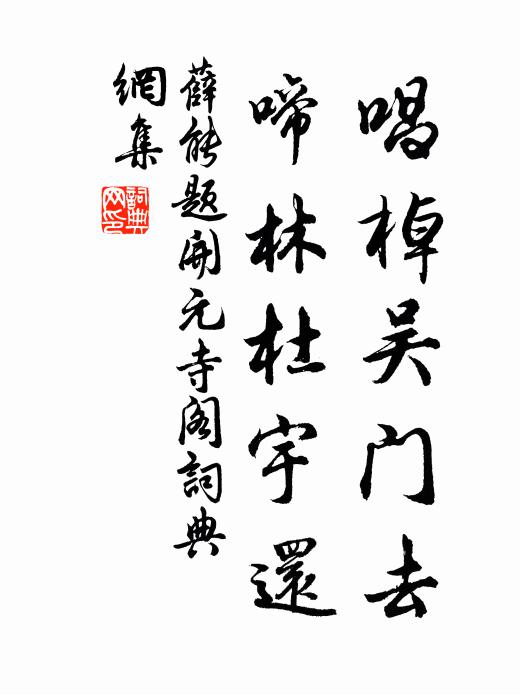 唱棹吴门去
啼林杜宇還
薛能题開元寺阁詞典
網集
詞典
网印